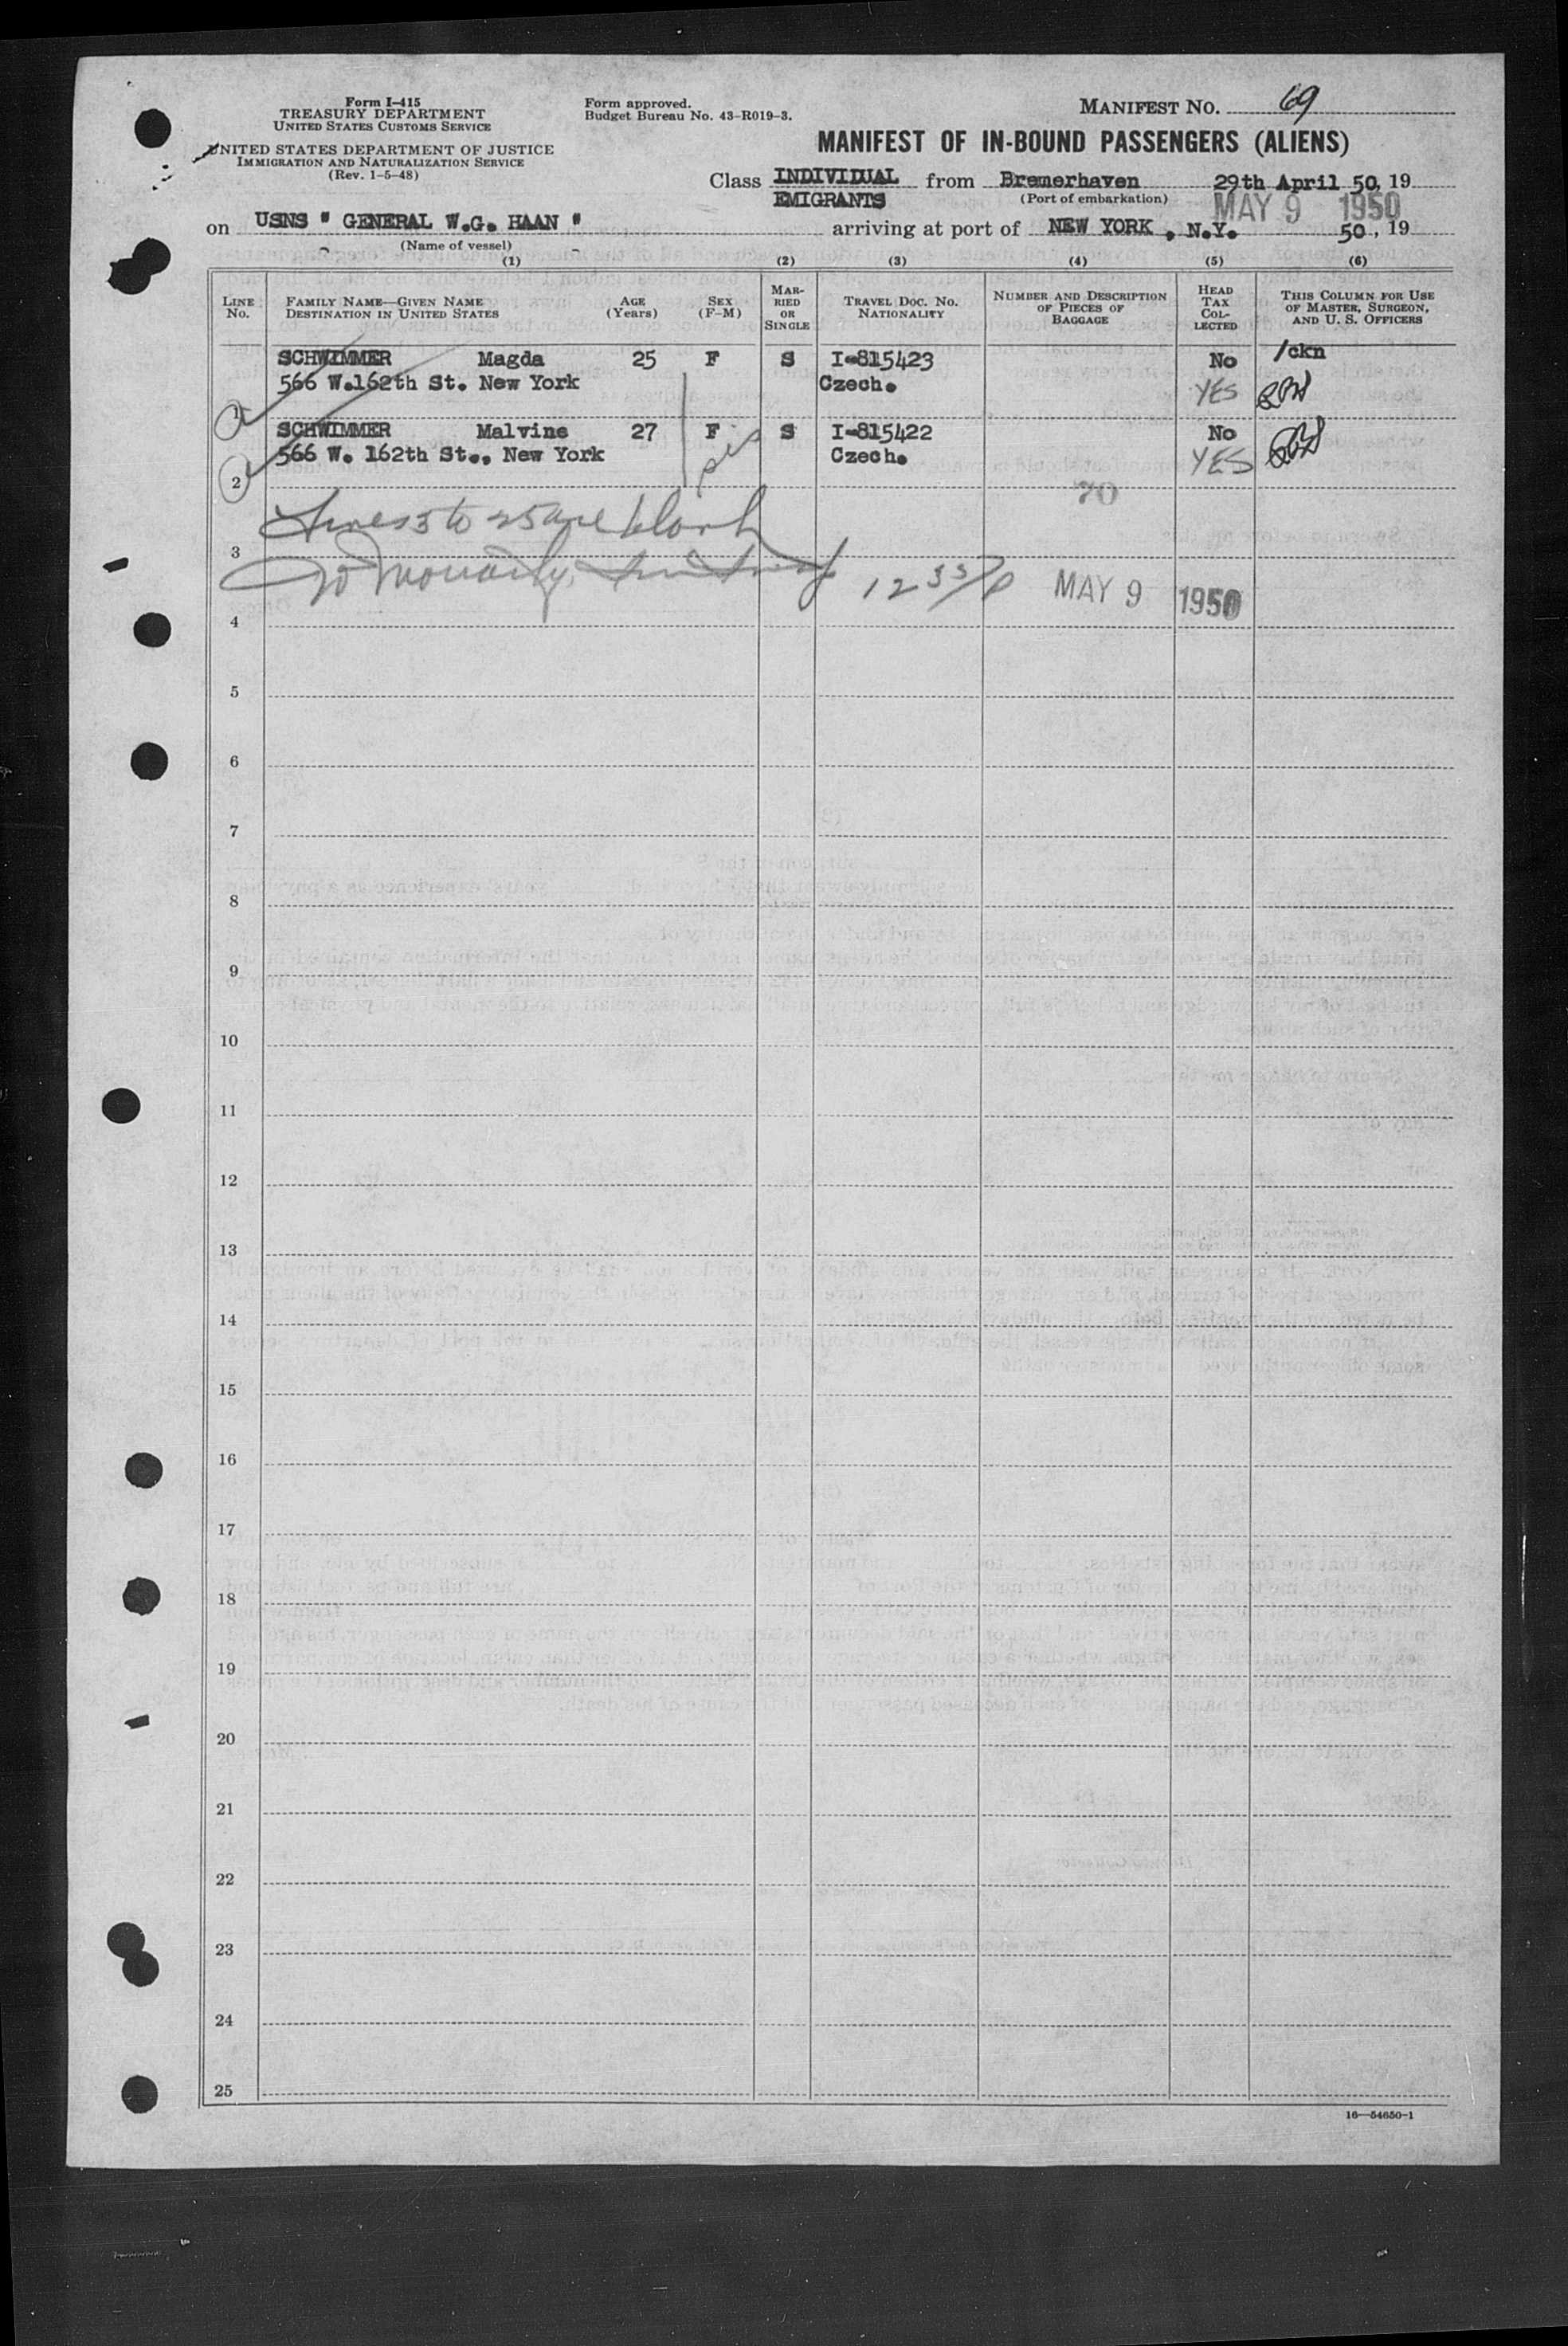 Form I-415
TREASURY DEPARTMENT
UNITED STATES CUSTOMS SERVICE
UNITED STATES DEPARTMENT OF JUSTICE
IMMIGRATION AND NATURALIZATION SERVICE
(Rev. 1-5-48)
Form approved.
Budget Bureau No. 43-R019-3.
MANIFEST NO. 69
MANIFEST OF IN-BOUND PASSENGERS (ALIENS)
Class INDIVIDUAL from Bremerhaven 29th April 50, 19
EMIGRANTS (Port of embarkation) MAY 9 1950
on USNS " GENERAL W.G. HAAN " arriving at port of NEW YORK , N.Y. 50, 19
(Name of vessel)
(1) (2) (3) (4) (5) (6)
LINE No. FAMILY NAME—GIVEN NAME DESTINATION IN UNITED STATES AGE (Years) SEX (F-M) MARRIED OR SINGLE TRAVEL DOC. NO. NATIONALITY NUMBER AND DESCRIPTION OF PIECES OF BAGGAGE HEAD TAX COLLECTED THIS COLUMN FOR USE OF MASTER, SURGEON, AND U. S. OFFICERS
SCHWIMMER Magda 25 F S I-815423 No /ckn
566 W.162th St. New York Czech. YES
1
SCHWIMMER Malvine 27 F S I-815422 No
566 W. 162th St., New York Czech. YES
2
70
Lines 3 to 25 are blank
3
MAY 9 1950
4
5
6
7
8
9
10
11
12
13
14
15
16
17
18
19
20
21
22
23
24
25
16—54650-1